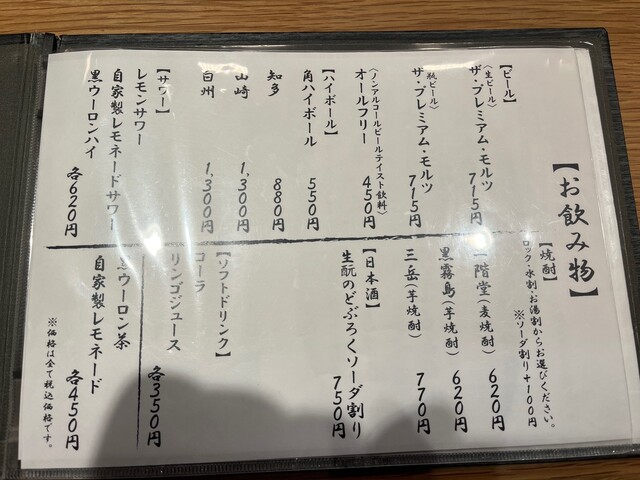 【お飲み物】
【ビール】
〈生ビール〉
ザ・プレミアム・モルツ 715円
〈瓶ビール〉
ザ・プレミアム・モルツ 715円
〈ノンアルコールビールテイスト飲料〉
オールフリー 450円
【ハイボール】
角ハイボール 550円
知多 880円
山崎 1,300円
白州 1,300円
【サワー】
レモンサワー
自家製レモネードサワー
黒ウーロンハイ 各620円
【焼酎】
ロック・水割・お湯割からお選びください。
※ソーダ割り+100円
一階堂(麦焼酎) 620円
黒霧島(芋焼酎) 620円
三岳(芋焼酎) 770円
【日本酒】
生酛のどぶろくソーダ割り 750円
【ソフトドリンク】
コーラ
リンゴジュース 各350円
黒ウーロン茶
自家製レモネード 各450円
※価格は全て税込価格です。